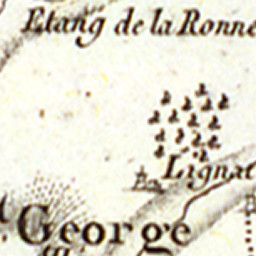 Etang de la Ronne
Lignac
George